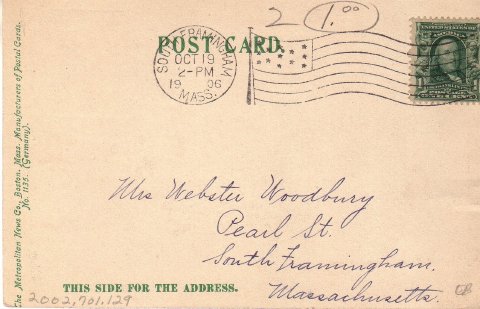 2 1.00
POST CARD.
SOUTH FRAMINGHAM
OCT 19
2-PM
1906
MASS.
The Metropolitan News Co., Boston, Mass. Manufacturers of Postal Cards.
No. 1135. (Germany).
Mrs Webster Woodbury
Pearl St.
South Framingham.
Massachusetts.
THIS SIDE FOR THE ADDRESS.
2002,701.129